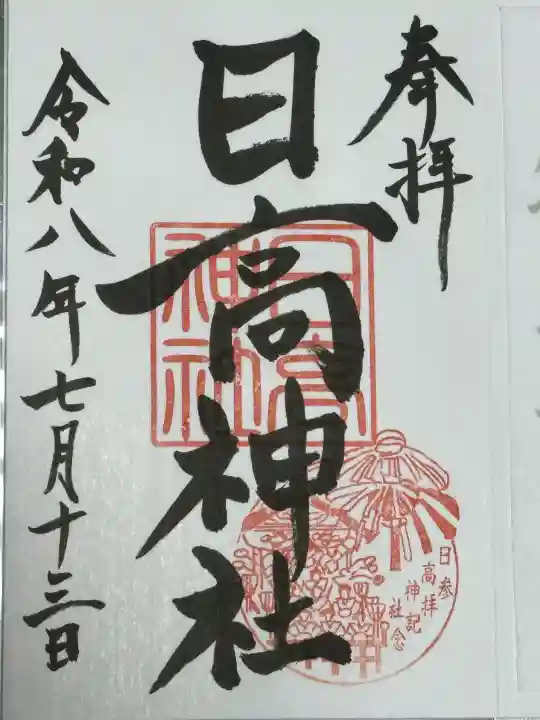 奉拝
日高神社
日高神社
日高神社
参拝記念
令和八年七月十三日